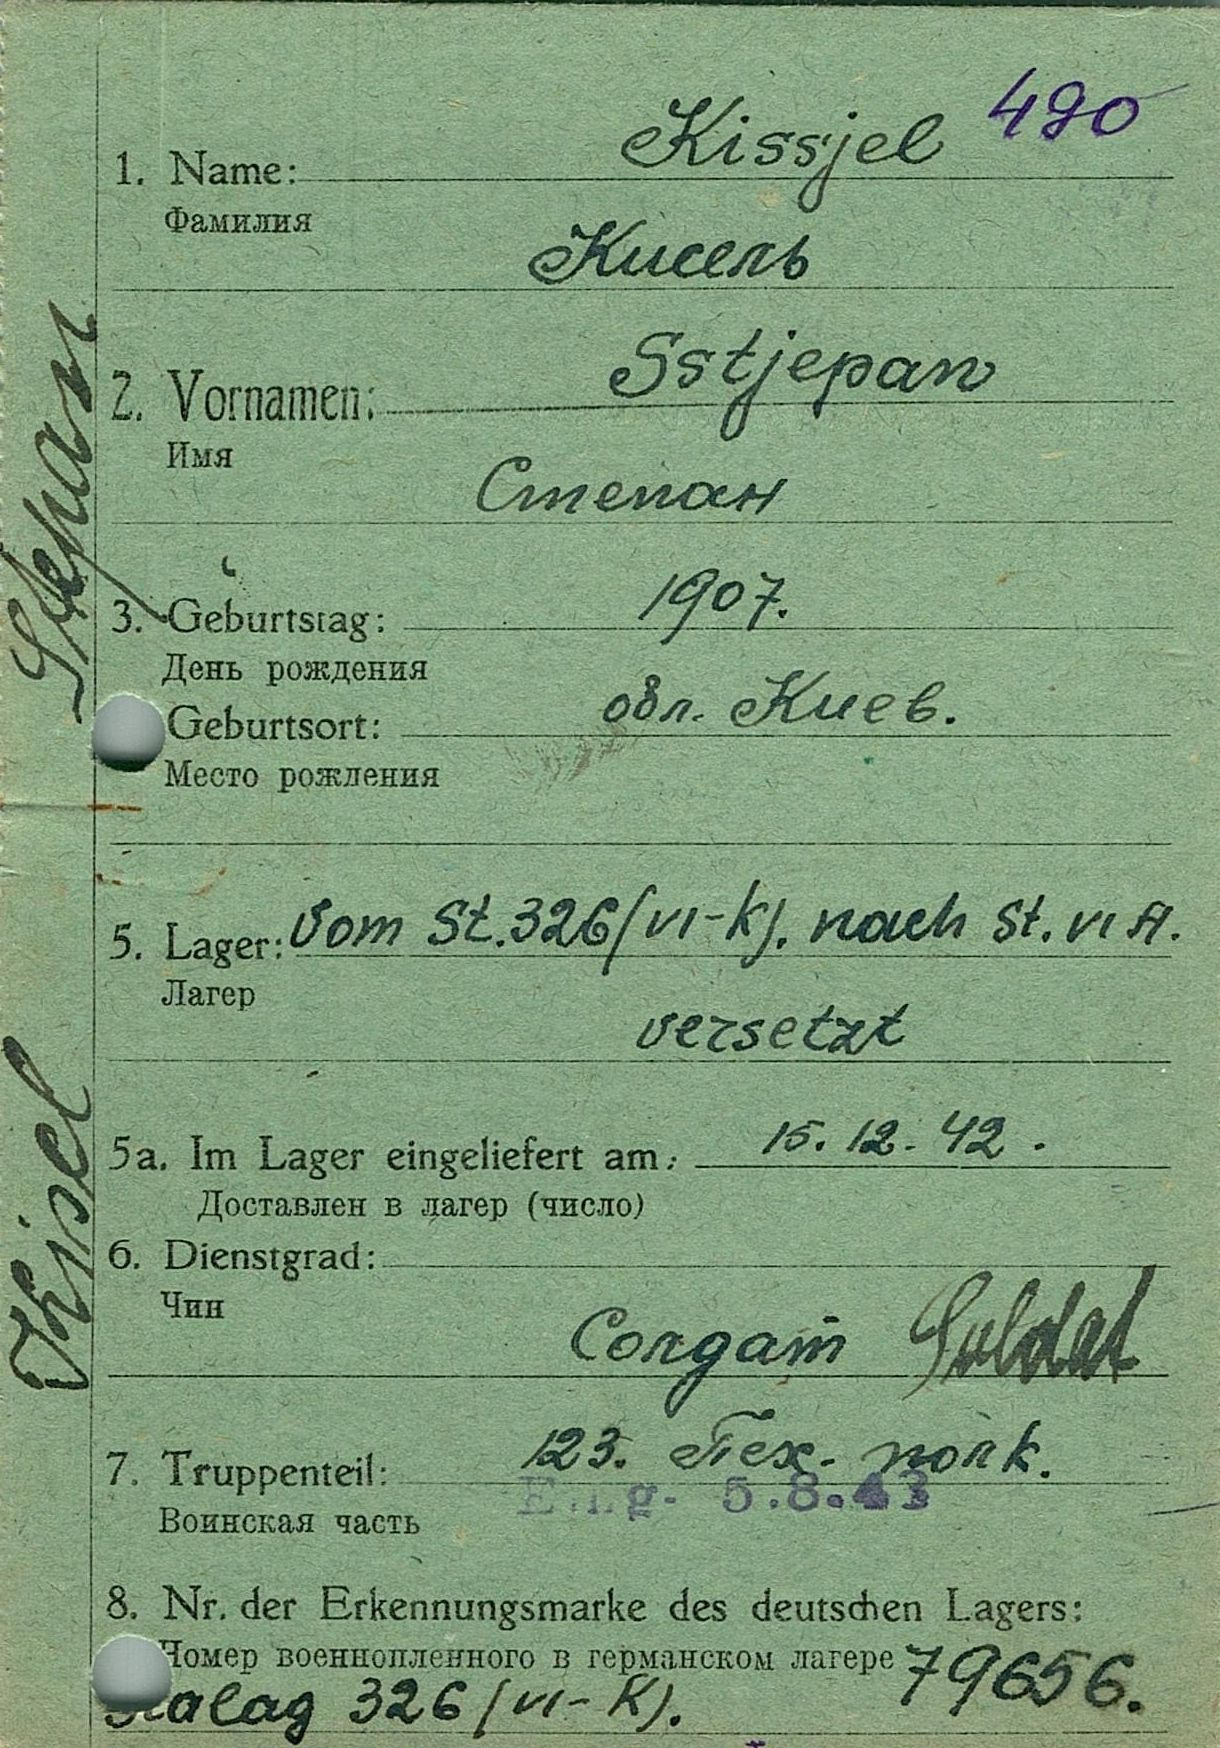 490
1. Name: Kissjel
Фамилия
Кисель
2. Vornamen: Sstjepan
Имя
Степан
3. Geburtstag: 1907.
День рождения
Geburtsort: обл. Киев.
Место рождения
5. Lager: Vom St. 326 (VI-K). nach St. VI A.
Лагер
versetzt
5a. Im Lager eingeliefert am: 15. 12. 42.
Доставлен в лагер (число)
6. Dienstgrad:
Чин
Солдат Soldat
7. Truppenteil: 123. Тех. полк.
Eing. 5.8.43
Воинская часть
8. Nr. der Erkennungsmarke des deutschen Lagers:
Номер военнопленного в германском лагере 79656.
Stalag 326 (VI-K).
Kisel Stepan